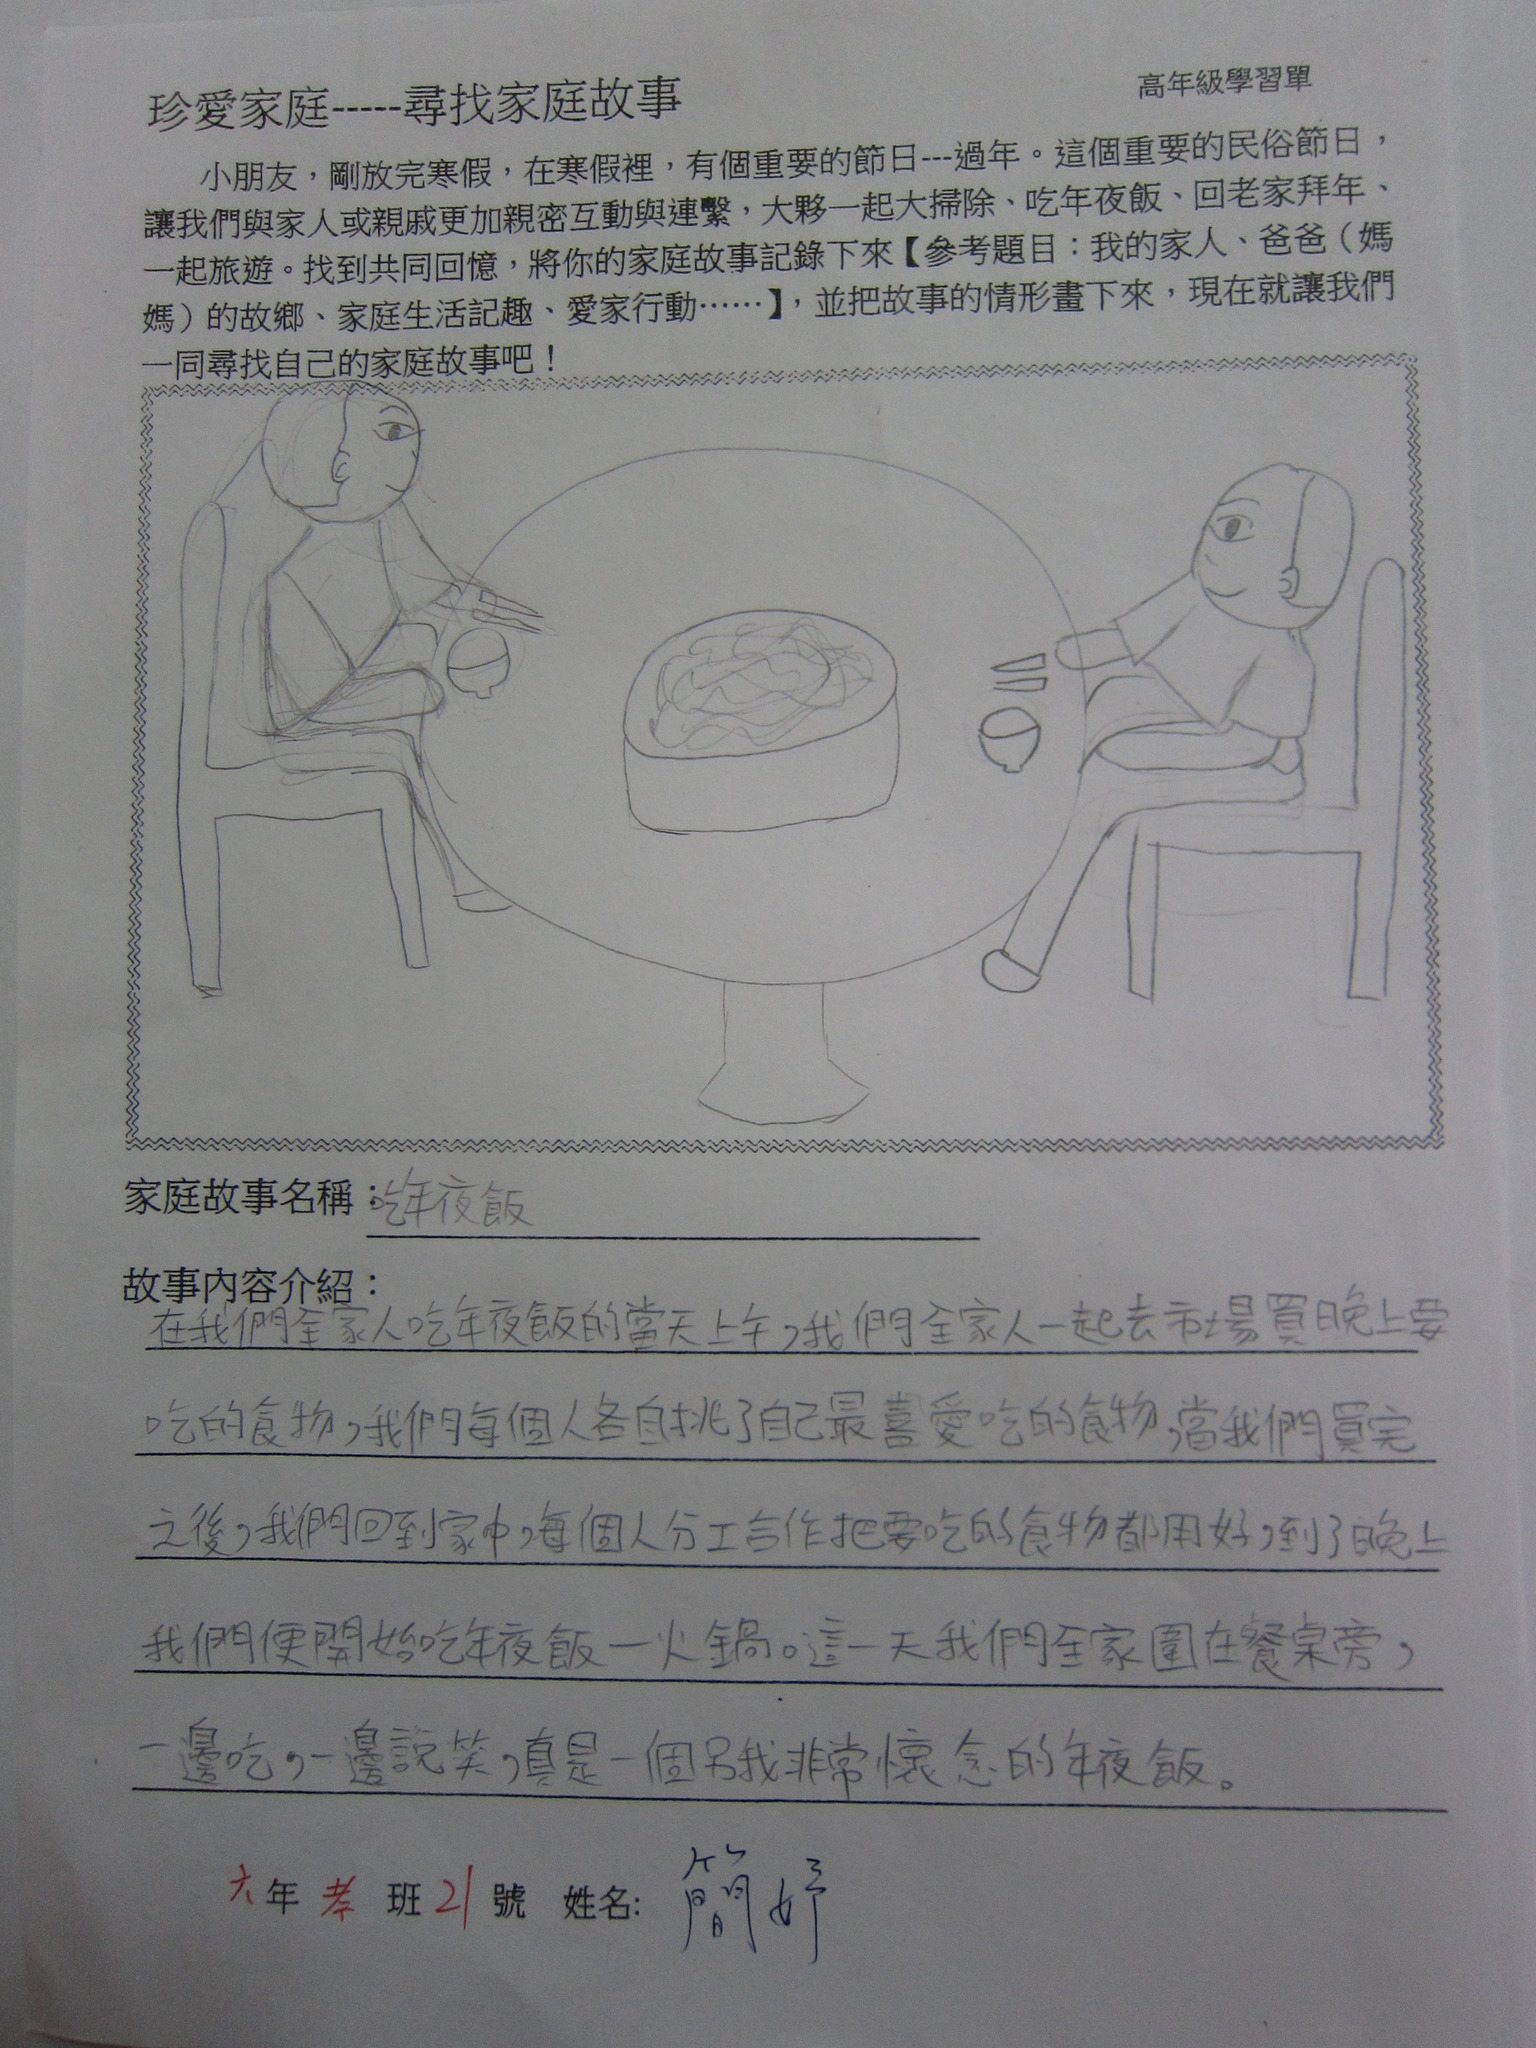 高年級學習單
珍愛家庭-----尋找家庭故事
小朋友，剛放完寒假，在寒假裡，有個重要的節日---過年。這個重要的民俗節日，
讓我們與家人或親戚更加親密互動與連繫，大夥一起大掃除、吃年夜飯、回老家拜年、
一起旅遊。找到共同回憶，將你的家庭故事記錄下來【參考題目：我的家人、爸爸（媽
媽）的故鄉、家庭生活記趣、愛家行動……】，並把故事的情形畫下來，現在就讓我們
一同尋找自己的家庭故事吧！
家庭故事名稱：吃年夜飯
故事內容介紹：
在我們全家人吃年夜飯的當天上午，我們全家人一起去市場買晚上要
吃的食物，我們每個人各自挑了自己最喜愛吃的食物，當我們買完
之後，我們回到家中，每個人分工合作把要吃的食物都用好，到了晚上
我們便開始吃年夜飯－火鍋。這一天我們全家圍在餐桌旁，
一邊吃，一邊說笑，真是一個另我非常懷念的年夜飯。
六年 孝 班 21 號 姓名: 簡妤